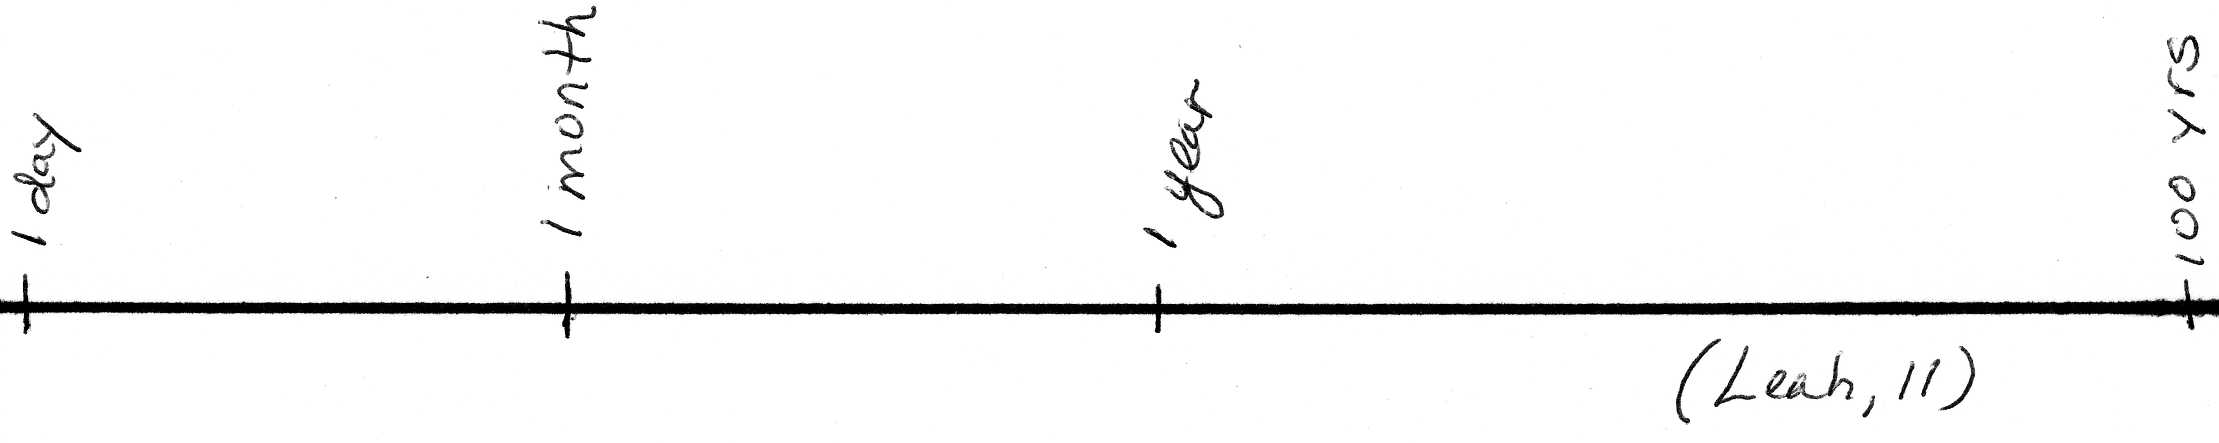 1 day
1 month
1 year
100 yrs
(Leah, 11)